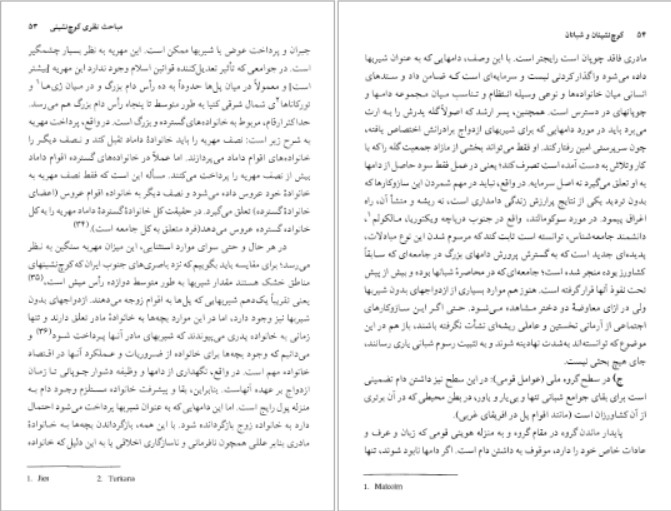 مباحث نظری کوچ‌نشینی ۵۳
جبران و پرداخت عوض با شیربها ممکن است. این مهریه به نظر بسیار چشمگیر
است. در جوامعی که تأثیر تعدیل‌کننده قوانین اسلام وجود ندارد این مهریه [بیشتر
است] و معمولاً در میان پل‌ها حدوداً به ده رأس دام بزرگ و در میان ژی‌ها۱ و
تورکاناها۲ی شمال شرقی کنیا به طور متوسط تا پنجاه رأس دام بزرگ هم می‌رسد.
حداکثر ارقام، مربوط به خانواده‌های گسترده و بزرگ است. در واقع، پرداخت مهریه
به شرح زیر است: نصف مهریه را باید خانوادهٔ داماد تقبل کند و نصف دیگر را
خانواده‌های اقوام داماد می‌پردازند. اما عملاً در خانواده‌های گسترده اقوام داماد
بیش از نصف مهریه را پرداخت می‌کنند. مسأله این است که فقط نصف مهریه به
خانوادهٔ خود عروس داده می‌شود و نصف دیگر به خانواده اقوام عروس (اعضای
خانوادهٔ گسترده) تعلق می‌گیرد. در حقیقت کل خانوادهٔ گستردهٔ داماد مهریه را به کل
خانواده گسترده عروس می‌دهد (فرد متعلق به کل جامعه است).(۳۴)
در هر حال و حتی سوای موارد استثنایی، این میزان مهریه سنگین به نظر
می‌رسد؛ برای مقایسه باید بگوییم که نزد باصری‌های جنوب ایران که کوچ‌نشینهای
مناطق خشک هستند مقدار شیربها به طور متوسط دوازده رأس میش است،(۳۵)
یعنی تقریباً یک‌دهم شیربهایی که پل‌ها به اقوام زوجه می‌دهند. ازدواجهای بدون
شیربها نیز وجود دارد، اما در این موارد بچه‌ها به خانوادهٔ مادر تعلق دارند و تنها
زمانی به خانواده پدری می‌پیوندند که شیربهای مادر آنها پرداخت شود(۳۶) و
می‌دانیم که وجود بچه‌ها برای خانواده از ضروریات و عملکرد آنها در اقتصاد
خانواده مهم است. در واقع، نگهداری از دامها و وظیفه دشوار چوپانی تا زمان
ازدواج بر عهده آنهاست. بنابراین، بقا و پیشرفت خانواده مستلزم وجود دام به
منزله پول رایج است. اما این دامهایی که به عنوان شیربها پرداخت می‌شود احتمال
دارد به خانواده زوج بازگردانده شود. با این همه، بازگرداندن بچه‌ها به خانوادهٔ
مادری بنابر عللی همچون نافرمانی و ناسازگاری اخلاقی یا به این دلیل که خانواده
1. Jies 2. Turkana
۵۴ کوچ‌نشینان و شبانان
مادری فاقد چوپان است رایجتر است. با این وصف، دامهایی که به عنوان شیربها
داده می‌شود واگذار کردنی نیست و سرمایه‌ای است که ضامن داد و ستدهای
انسانی میان خانواده‌ها و نوعی وسیله انتظام و تناسب میان مجموعه دامها و
چوپانهای در دسترس است. همچنین، پسر ارشد که اصولاً گله پدرش را به ارث
می‌برد باید در مورد دامهایی که برای شیربهای ازدواج برادرانش اختصاص یافته،
چون سرپرستی امین رفتار کند. او فقط می‌تواند بخشی از مازاد جمعیت گله را که با
کار و تلاش به دست آمده است تصرف کند؛ یعنی در عمل فقط سود حاصل از دامها
به او تعلق می‌گیرد نه اصل سرمایه. در واقع، نباید در مهم شمردن این سازوکارها که
بدون تردید یکی از نتایج پرارزش زندگی دامداری است، نه ریشه و منشأ آن، راه
اغراق پیمود. در مورد سوکومالند، واقع در جنوب دریاچه ویکتوریا، مالکولم۱،
دانشمند جامعه‌شناس، توانسته است ثابت کند که مرسوم شدن این نوع مبادلات،
پدیده‌ای جدید است که به گسترش پرورش دامهای بزرگ در جامعه‌ای که سابقاً
کشاورز بوده منجر شده است؛ جامعه‌ای که در محاصرهٔ شبانها بوده و بیش از پیش
تحت نفوذ آنها قرار گرفته است. هنوز هم موارد بسیاری از ازدواجهای بدون شیربها
ولی در ازای معاوضهٔ دو دختر مشاهده می‌شود. حتی اگر این سازوکارهای
اجتماعی از آرمانی نخستین و عاملی ریشه‌ای نشأت نگرفته باشند، باز هم در این
موضوع که توانسته‌اند به‌شدت نهادینه شوند و به تثبیت رسوم شبانی یاری رسانند،
جای هیچ بحثی نیست.
ج) در سطح گروه ملی (عوامل قومی): در این سطح نیز داشتن دام تضمینی
است برای بقای جوامع شبانی تنها و بی‌یار و یاور، در بطن محیطی که در آن برتری
از آن کشاورزان است (مانند اقوام پل در افریقای غربی).
پایدار ماندن گروه در مقام گروه و به منزله هویتی قومی که زبان و عرف و
عادات خاص خود را دارد، موقوف به داشتن دام است. اگر دامها نابود شوند، تنها
1. Malcolm